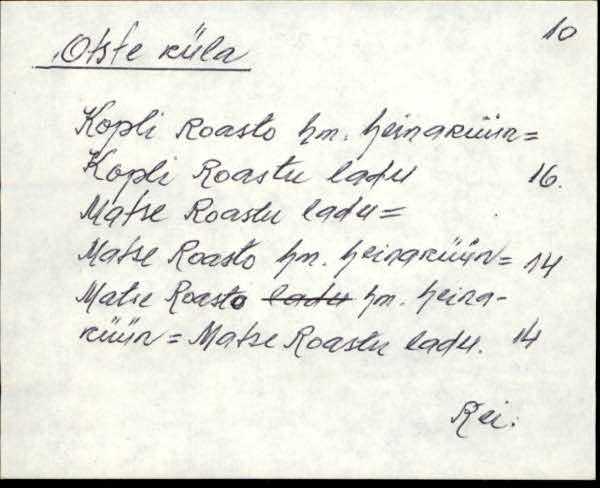 Otste küla 10
Kopli Roasto hm. heinaküün=
Kopli Roastu ladu 16.
Matse Roastu ladu=
Matse Roasto hm. heinaküün= 14
Matse Roasto ladu hm. heina-
küün=Matse Roastu ladu. 14
Rei.